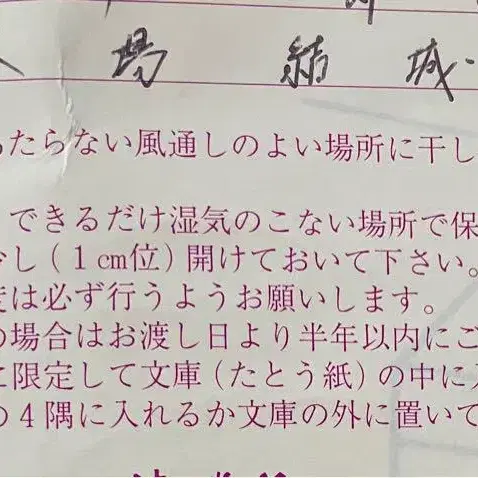 場 結城
たらない風通しのよい場所に干し
できるだけ湿気のこない場所で保
し(1cm位)開けておいて下さい。
は必ず行うようお願いします。
の場合はお渡し日より半年以内にご
に限定して文庫(たとう紙)の中に入
の4隅に入れるか文庫の外に置いて